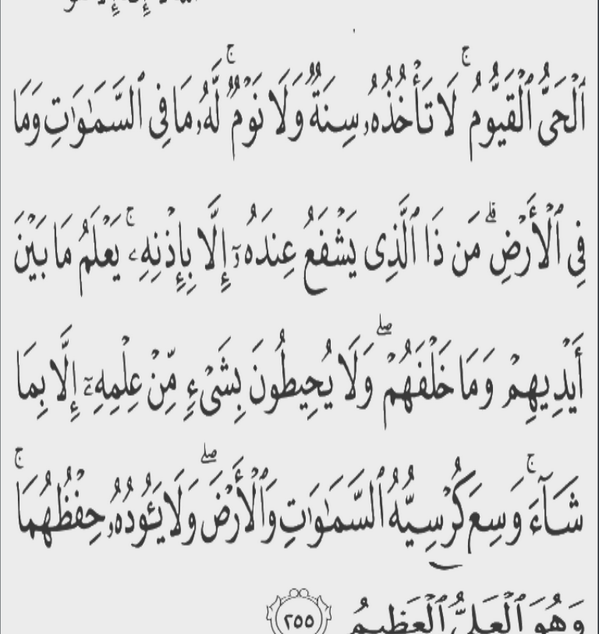 ٱلْحَىُّ ٱلْقَيُّومُ ۚ لَا تَأْخُذُهُۥ سِنَةٌ وَلَا نَوْمٌ ۚ لَّهُۥ مَا فِى ٱلسَّمَـٰوَٰتِ وَمَا
فِى ٱلْأَرْضِ ۗ مَن ذَا ٱلَّذِى يَشْفَعُ عِندَهُۥٓ إِلَّا بِإِذْنِهِۦ ۚ يَعْلَمُ مَا بَيْنَ
أَيْدِيهِمْ وَمَا خَلْفَهُمْ ۖ وَلَا يُحِيطُونَ بِشَىْءٍ مِّنْ عِلْمِهِۦٓ إِلَّا بِمَا
شَآءَ ۚ وَسِعَ كُرْسِيُّهُ ٱلسَّمَـٰوَٰتِ وَٱلْأَرْضَ ۖ وَلَا يَـُٔودُهُۥ حِفْظُهُمَا ۚ
وَهُوَ ٱلْعَلِىُّ ٱلْعَظِيمُ ٢٥٥